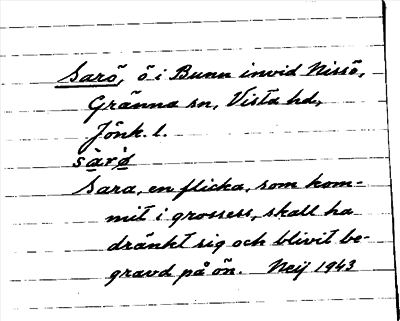 Sarö, ö i Bunn invid Nissö,
Gränna sn, Vista hd,
Jönk. l.
sàrø
Sara, en flicka, som kom-
mit i grossess, skall ha
dränkt sig och blivit be-
gravd på ön. Neij 1943